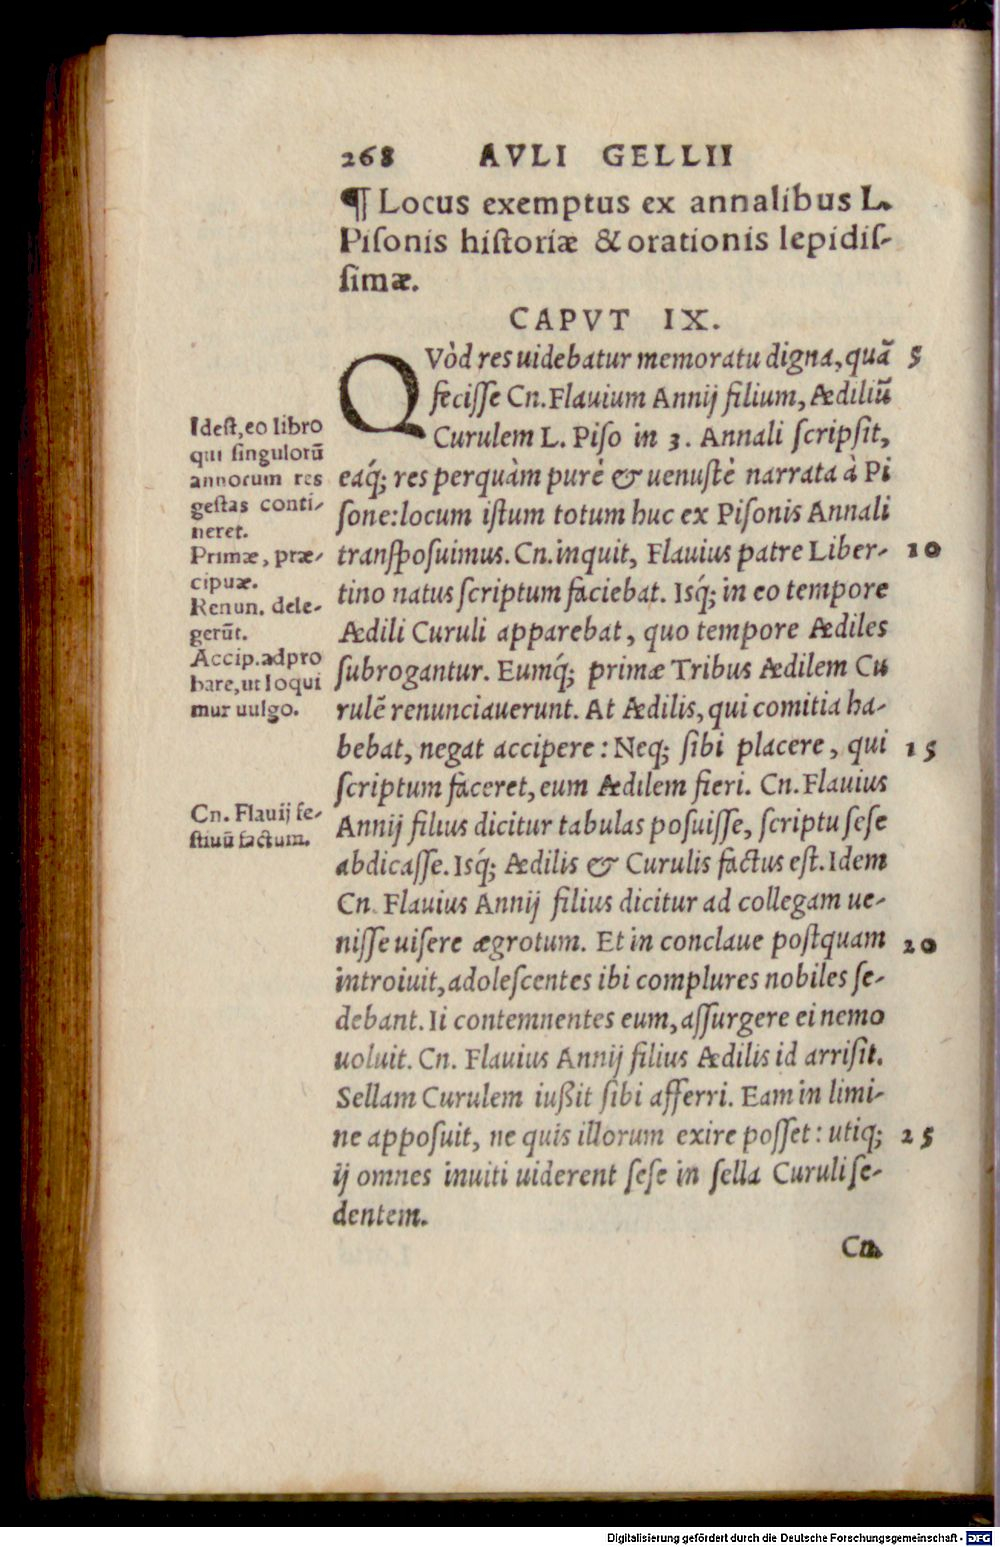 268 AVLI GELLII
¶ Locus exemptus ex annalibus L.
Piſonis hiſtoriæ & orationis lepidiſ-
ſimæ.
CAPVT IX.
QVòd res uidebatur memoratu digna, quã 5
feciſſe Cn. Flauium Annij filium, Ædiliũ
Curulem L. Piſo in 3. Annali ſcripſit,
eaq́; res perquàm purè & uenuſtè narrata à Pi
ſone: locum iſtum totum huc ex Piſonis Annali
tranſpoſuimus. Cn. inquit, Flauius patre Liber- 10
tino natus ſcriptum faciebat. Isq́; in eo tempore
Ædili Curuli apparebat, quo tempore Ædiles
ſubrogantur. Eumq́; primæ Tribus Ædilem Cu
rulẽ renunciauerunt. At Ædilis, qui comitia ha-
bebat, negat accipere: Neq; ſibi placere, qui 15
ſcriptum faceret, eum Ædilem fieri. Cn. Flauius
Annij filius dicitur tabulas poſuiſſe, ſcriptu ſeſe
abdicaſſe. Isq́; Ædilis & Curulis factus eſt. Idem
Cn. Flauius Annij filius dicitur ad collegam ue-
niſſe uiſere ægrotum. Et in conclaue poſtquam 20
introiuit, adoleſcentes ibi complures nobiles ſe-
debant. Ii contemnentes eum, aſſurgere ei nemo
uoluit. Cn. Flauius Annij filius Ædilis id arriſit.
Sellam Curulem iußit ſibi afferri. Eam in limi-
ne appoſuit, ne quis illorum exire poſſet: utiq; 25
ij omnes inuiti uiderent ſeſe in ſella Curuli ſe-
dentem.
Cn.
Ideſt, eo libro
qui ſingulorũ
annorum res
geſtas conti-
neret.
Primæ, præ-
cipuæ.
Renun. dele-
gerũt.
Accip. ad pro
bare, ut loqui
mur uulgo.
Cn. Flauij fe-
ſtiuũ factum.
Digitalisierung gefördert durch die Deutsche Forschungsgemeinschaft - DFG